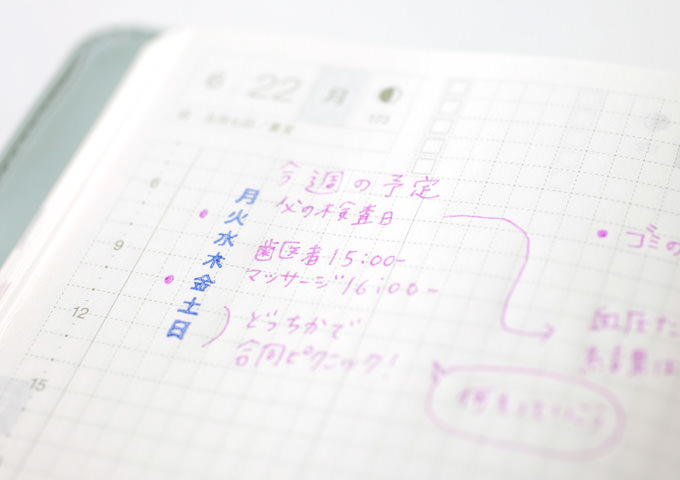 6 22 月
123
今週の予定
父の検査日
歯医者15:00-
マッサージ16:00-
どっちかで
合同ピクニック!
月
火
水
木
金
土
日
6
9
12
15
ゴミの
血圧